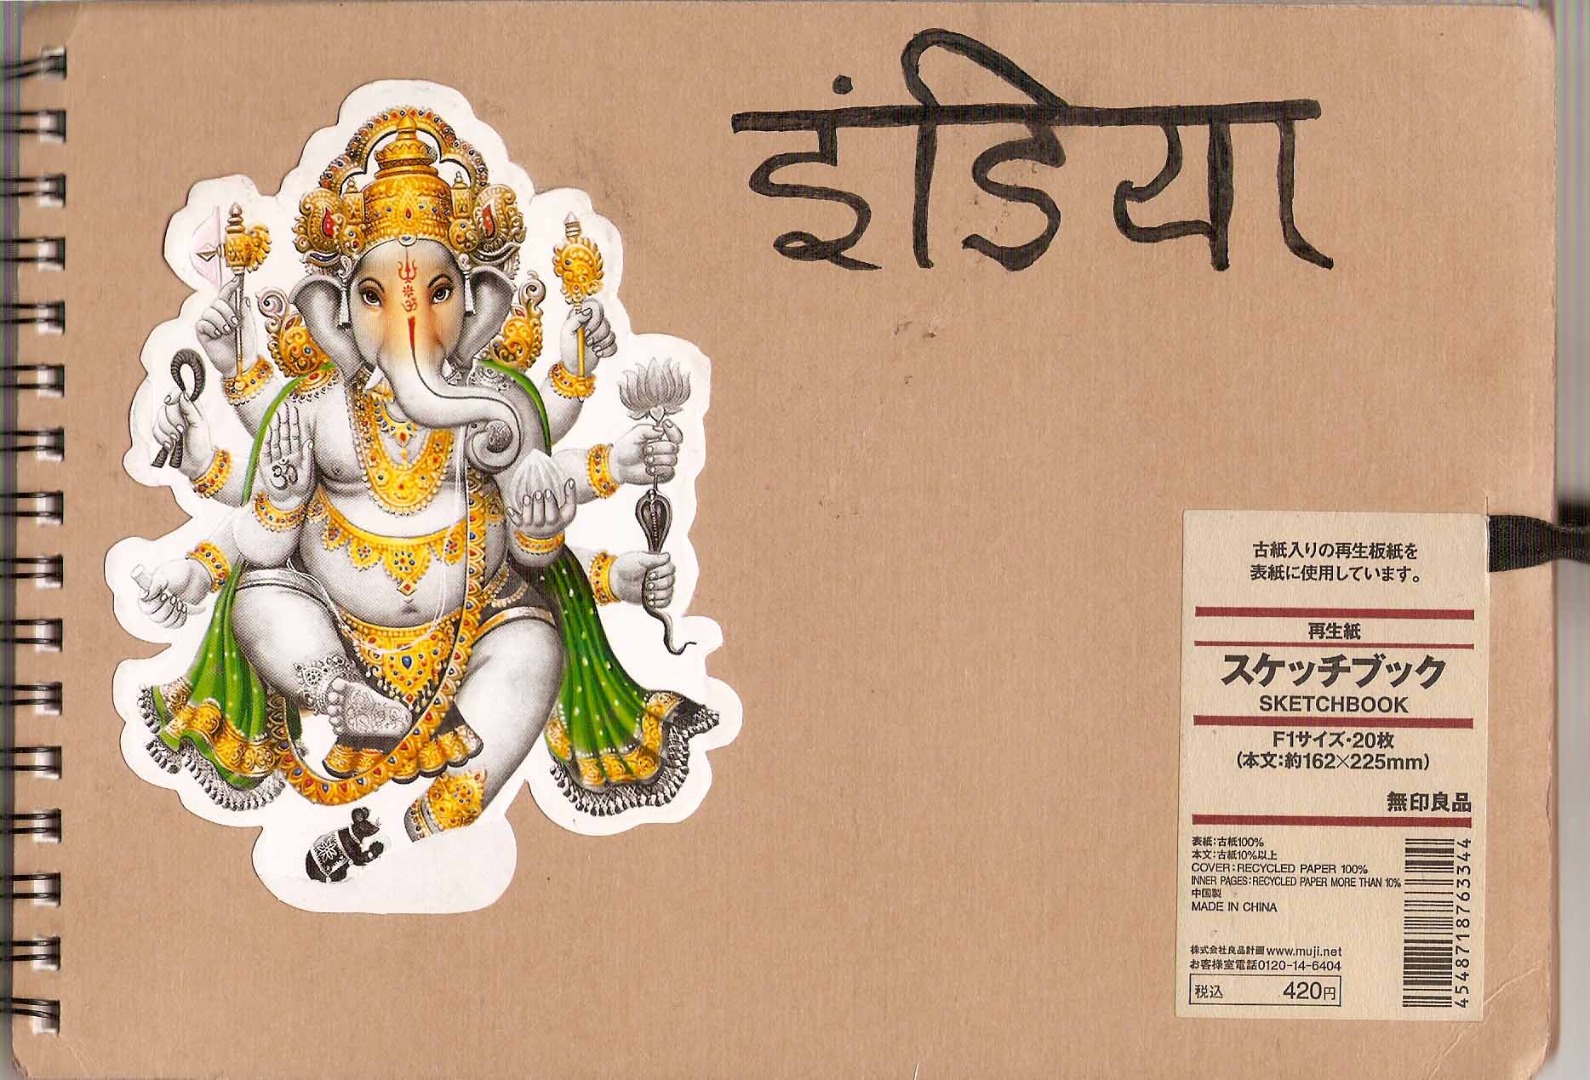 इंडिया
古紙入りの再生板紙を
表紙に使用しています。
再生紙
スケッチブック
SKETCHBOOK
F1サイズ・20枚
(本文:約162×225mm)
無印良品
表紙:古紙100%
本文:古紙10%以上
COVER:RECYCLED PAPER 100%
INNER PAGES:RECYCLED PAPER MORE THAN 10%
中国製
MADE IN CHINA
株式会社良品計画 www.muji.net
お客様室電話0120-14-6404
税込 420円
4548718763344
ॐ